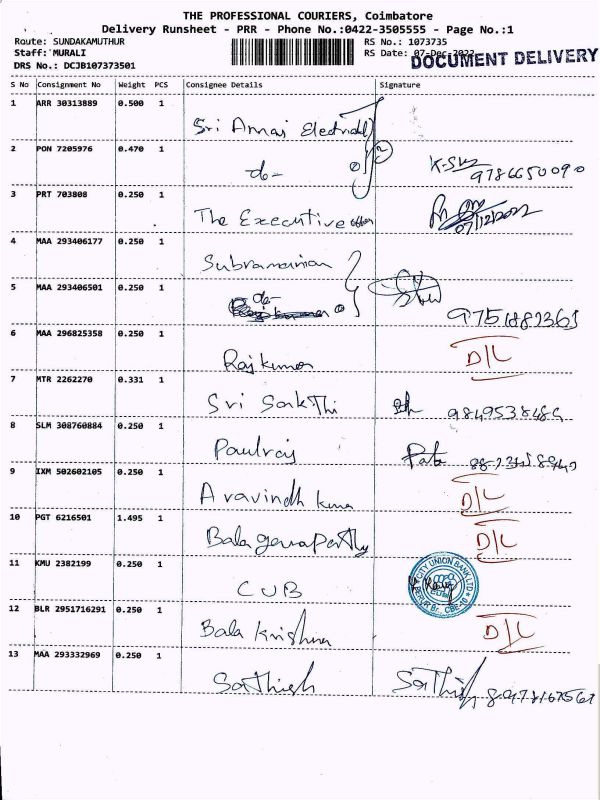 THE PROFESSIONAL COURIERS, Coimbatore
Delivery Runsheet - PRR - Phone No.:0422-3505555 - Page No.:1
Route: SUNDAKAMUTHUR RS No.: 1073735
Staff: MURALI RS Date: 07-Dec-2022
DOCUMENT DELIVERY
DRS No.: DCJB107373501
S No Consignment No Weight PCS Consignee Details Signature
1 ARR 30313889 0.500 1
Sri Amai Electricals
2 PON 7205976 0.470 1
do- 2 9786650090
3 PRT 703808 0.250 1
The Executive 07/12/2022
4 MAA 293406177 0.250 1
Subramanian
5 MAA 293406501 0.250 1
do-
6 MAA 296825358 0.250 1
Rajkumar D/L
7 MTR 2262270 0.331 1
Sri Sakthi 9849538484
8 SLM 308760884 0.250 1
Paulraj
9 IXM 502602105 0.250 1
Aravindh Kumar D/L
10 PGT 6216501 1.495 1
Balaganapathy D/L
11 KMU 2382199 0.250 1
CUB CITY UNION BANK LTD.
12 BLR 2951716291 0.250 1
Bala Krishna D/L
13 MAA 293332969 0.250 1
Sathish Sathish